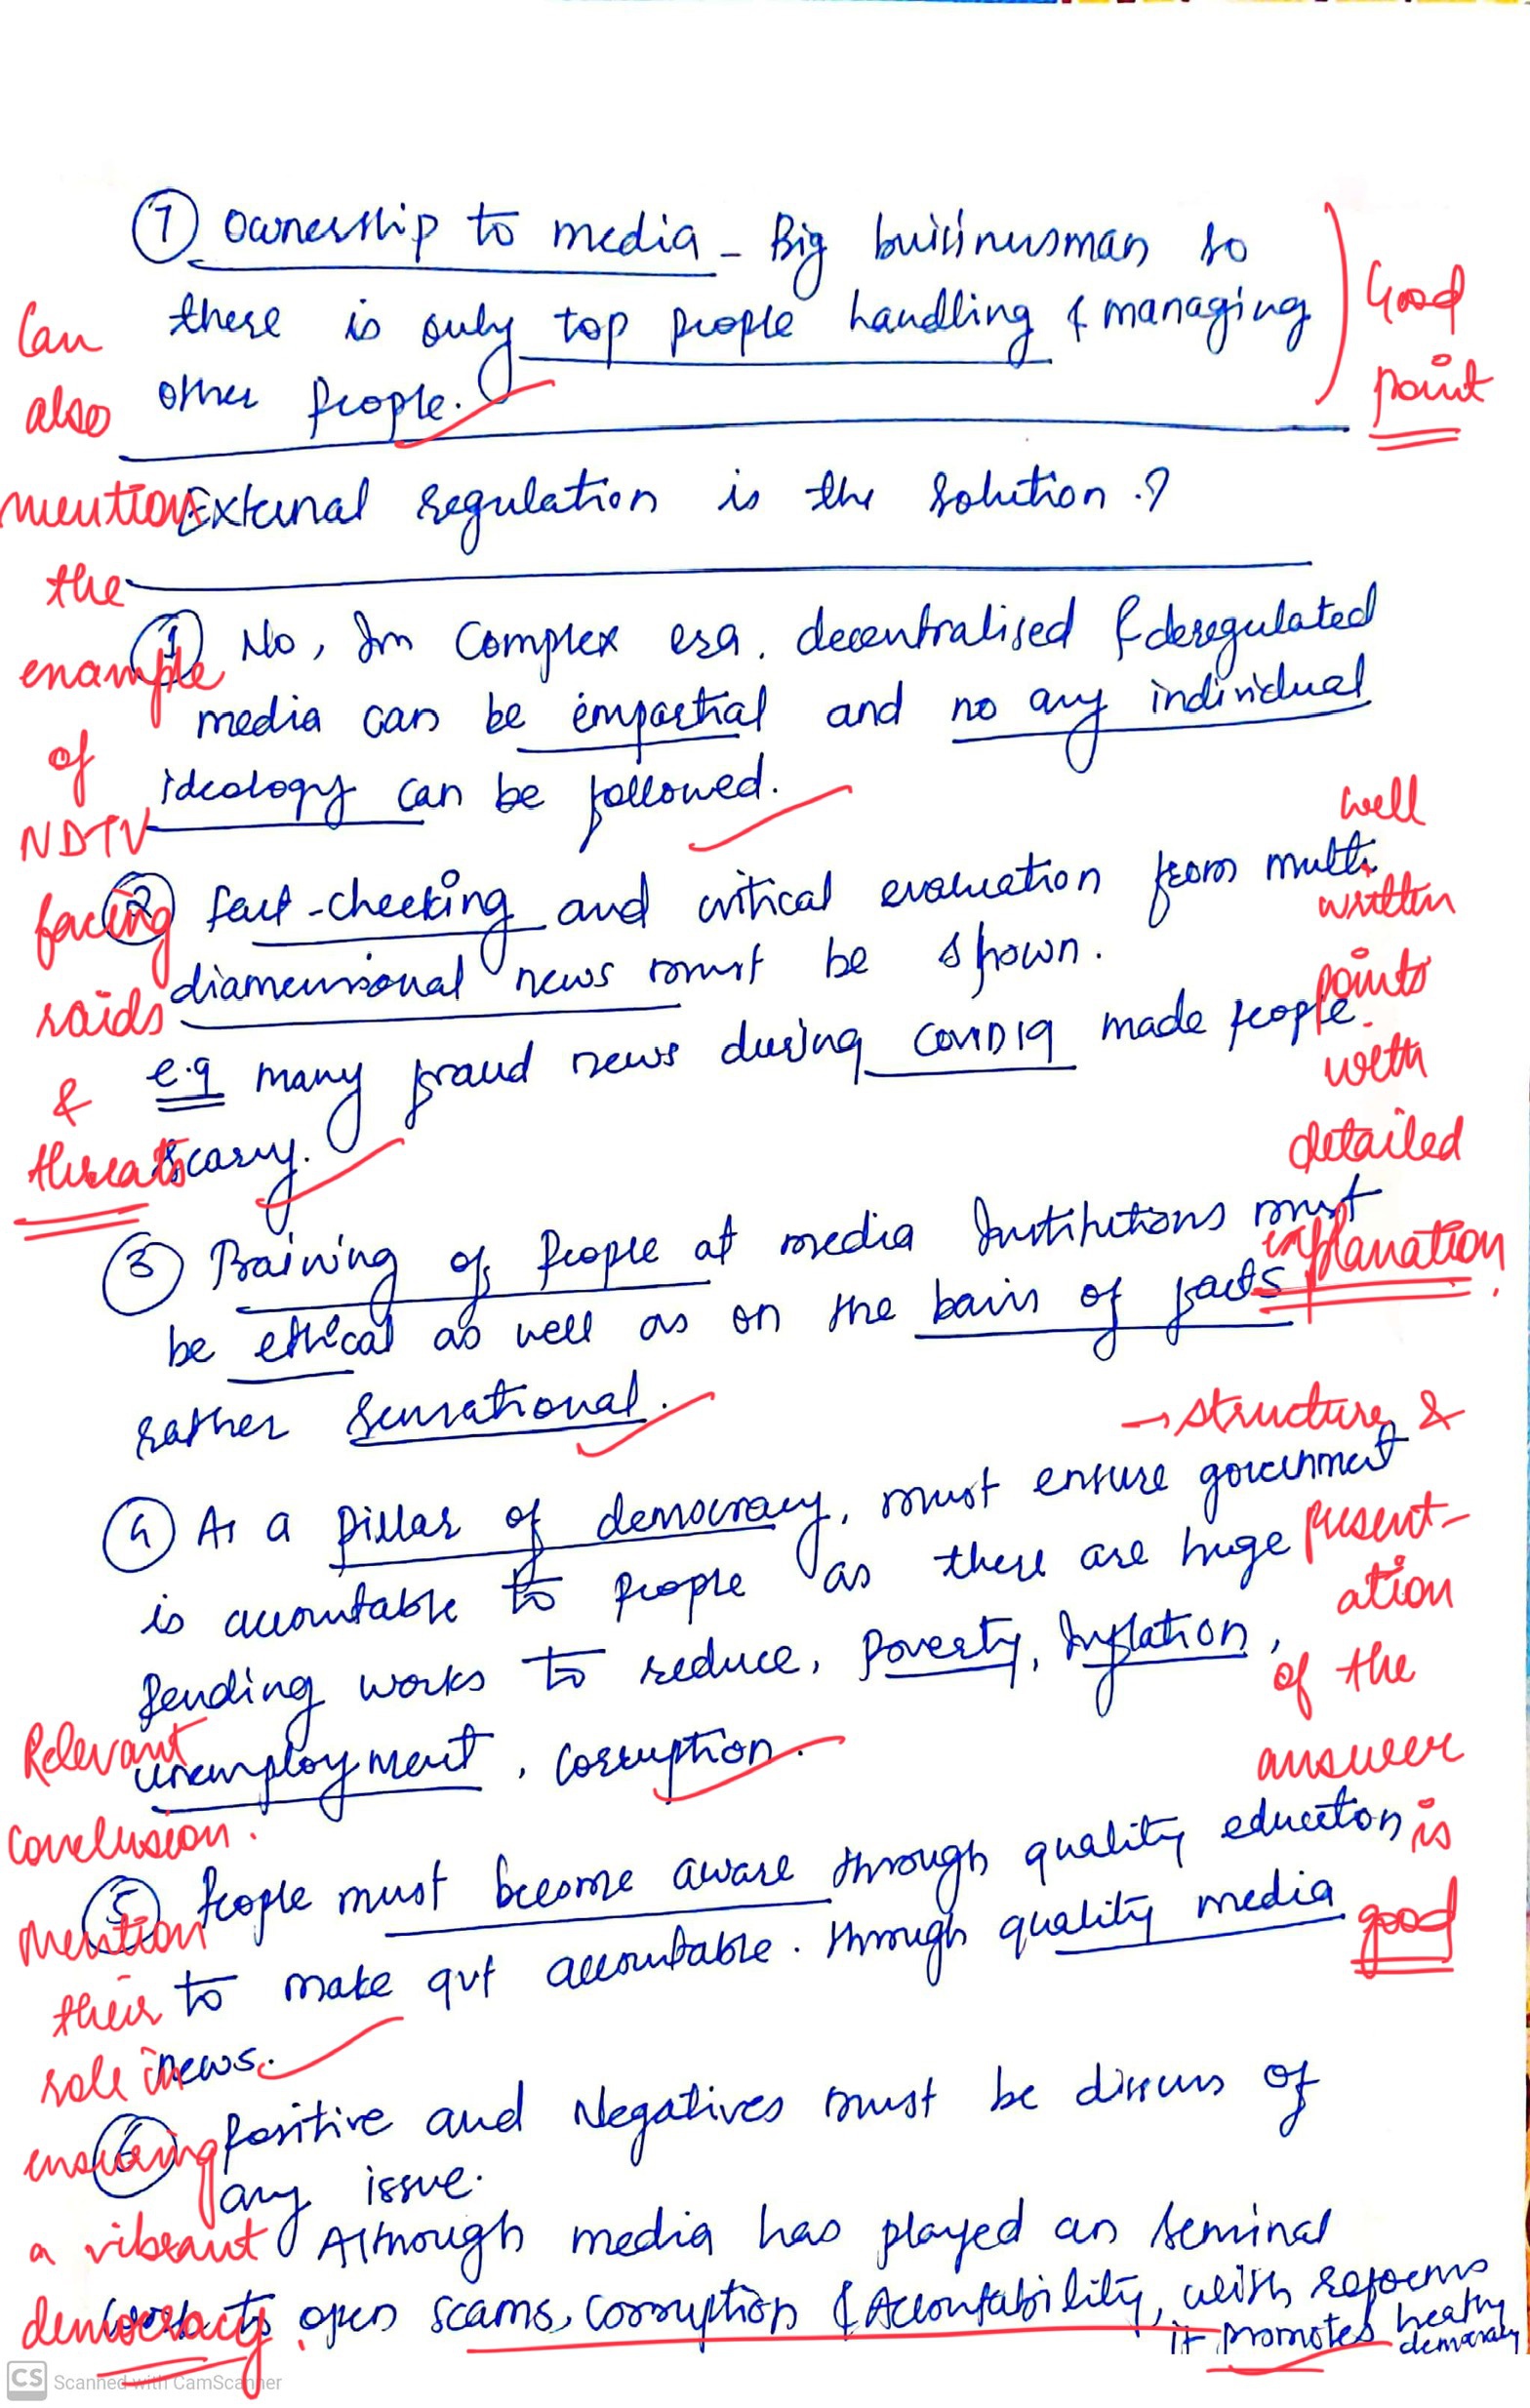 ⑦ Ownership to media - Big buisinessman so
there is only top people handling & managing
other people.
Good
point
External regulation is the solution ?
① No, In Complex era, decentralised & deregulated
media can be impartial and no any individual
ideology can be followed.
② fact-checking and critical evaluation from multi
diamensional news must be shown.
e.g many fraud news during COVID19 made people
scary.
Can
also
mention
the
example
of
NDTV
facing
raids
&
threats
well
written
points
with
detailed
explanation.
③ Training of People at media Institutions must
be ethical as well as on the basis of facts
rather sensational.
④ As a pillar of democracy, must ensure government
is accountable to people as there are huge
pending works to reduce, Poverty, Inflation,
unemployment, corruption.
→ structure &
present-
ation
of the
answer
is
good
⑤ People must become aware through quality education
to make gvt accountable. through quality media
news.
⑥ Positive and Negatives must be discuss of
any issue.
Although media has played an seminal
work to open scams, corruption & Accountability, with reforms
it promotes healthy
democracy
Relevant
conclusion.
Mention
their
role in
ensuring
a vibrant
democracy.
CS Scanned with CamScanner